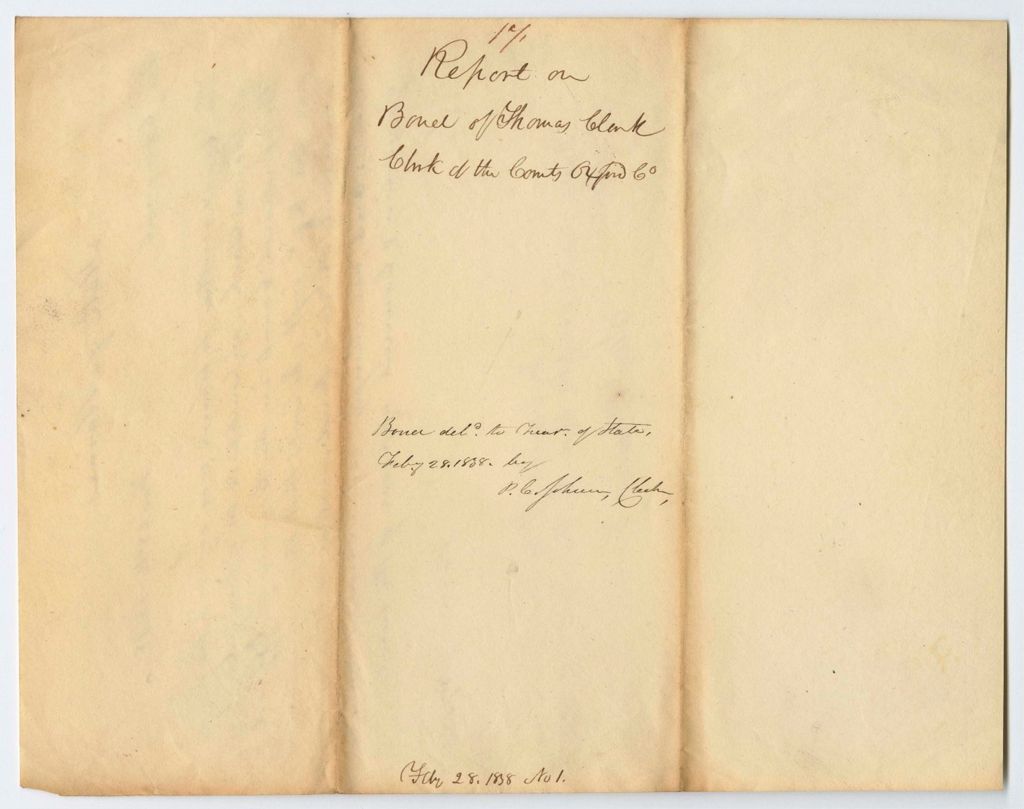 Report on
Bond of Thomas Clark
Clerk of the Courts Oxford Co
Bond deld. to Trear. of State,
Feby 28. 1838. by
P. C. Johnson, Clerk,
Feby 28. 1838 No 1.